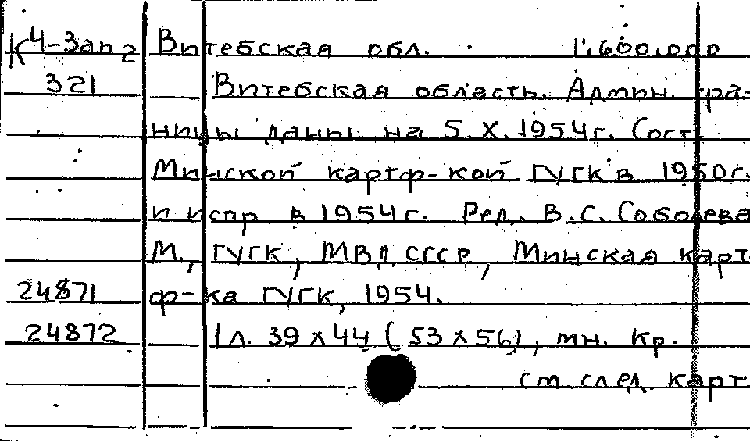 К 4-Зап 2 Витебская обл. 1:600.000
321 Витебская область. Админ. гра-
ницы даны на 5.X.1954г. Сост.
Минской картф-кой ГУГК в 1950г.
и испр в 1954г. Ред. В.С. Соболева
М., ГУГК, МВД СССР, Минская карт-
24871 ф-ка ГУГК, 1954.
24872 1л. 39 x 44 (53 x 56), мн. кр.
см. след. карт